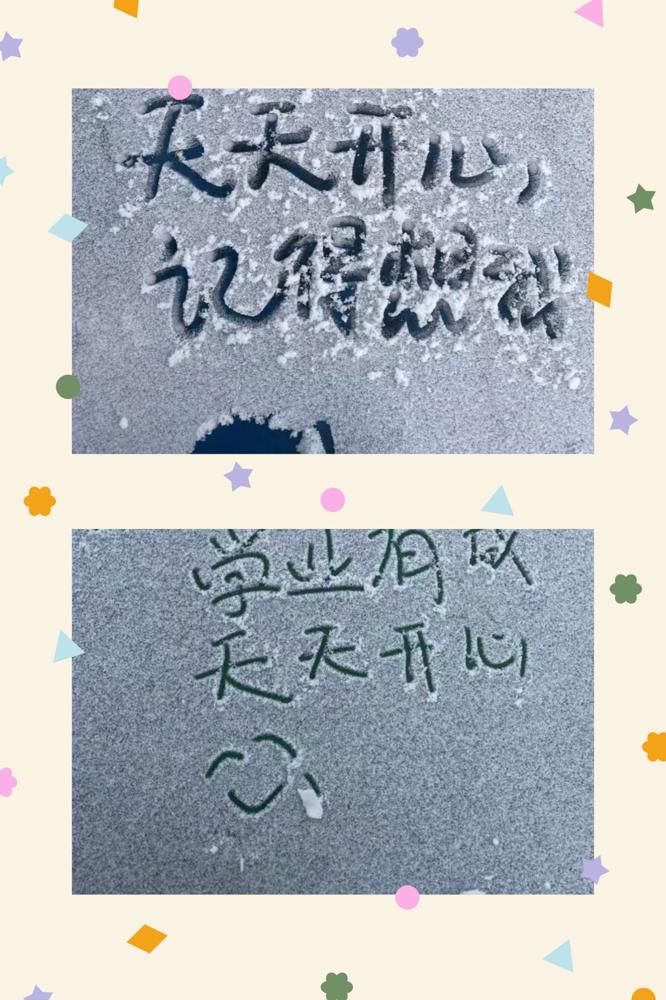 天天开心,
记得想我
学业有成
天天开心